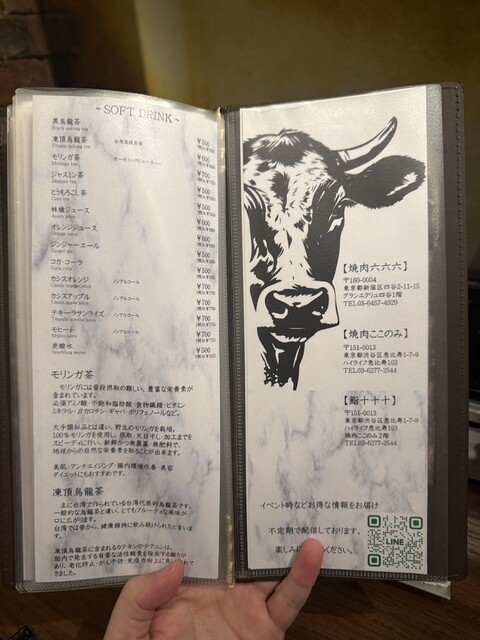 ~SOFT DRINK~
黒烏龍茶 ¥500
Black oolong tea
凍頂烏龍茶 台湾高級茶葉 ¥600
Frozen oolong tea
モリンガ茶 オーガニックビューティー ¥700
Moringa tea
ジャスミン茶 ¥500
Jasmine tea
とうもろこし茶 ¥500
Corn tea
林檎ジュース ¥600
Apple juice
オレンジジュース ¥600
Orange juice
ジンジャーエール ¥500
Ginger ale
コカ・コーラ ¥500
Coca cola
カシスオレンジ ノンアルコール ¥700
Cassis orange juice
カシスアップル ノンアルコール ¥700
Cassis apple juice
テキーラサンライズ ノンアルコール ¥700
Tequila sunrise juice
モヒート ノンアルコール ¥700
Mojito juice
炭酸水 ¥500
Sparkling water
モリンガ茶
モリンガには普段摂取の難しい、豊富な栄養素が
含まれています。
必須アミノ酸・不飽和脂肪酸・食物繊維・ビタミン
ミネラル・βカロチン・ギャバ・ポリフェノールなど。
大手類似品とは違い、野生のモリンガを栽培。
100%モリンガを使用し、摂取・天日干し・加工までを
スピーディに行い、新鮮かつ無農薬・無肥料で、
地球からの自然な栄養素を取ることが出来ます。
美肌・アンチエイジング・腸内環境改善・美容
ダイエットにもおすすめです。
凍頂烏龍茶
主に台湾で作られている台湾代表的烏龍茶です。
一般的な烏龍茶と違い、とてもフルーティな風味が
口に広がります。
台湾では昔から、健康維持に飲み続けられたと言いま
す。
凍頂烏龍茶に含まれるカテキンやテアニンは、
胎内で発生する有害な活性酸素を除去する働きが
あり、老化防止・がん予防・免疫力向上に
きました。
【焼肉六六六】
〒160-0004
東京都新宿区四谷2-11-15
グランエクリュ四谷1階
TEL.03-6457-4929
【焼肉ここのみ】
〒151-0013
東京都渋谷区恵比寿1-7-9
ハイライフ恵比寿1階
TEL.03-6277-2544
【鮨十十十】
〒151-0013
東京都渋谷区恵比寿1-7-9
ハイライフ恵比寿103
焼肉ここのみ2階
TEL.03-6277-2544
イベント時などお得な情報をお届け
不定期で配信しております。
楽しみに ください。
LINE